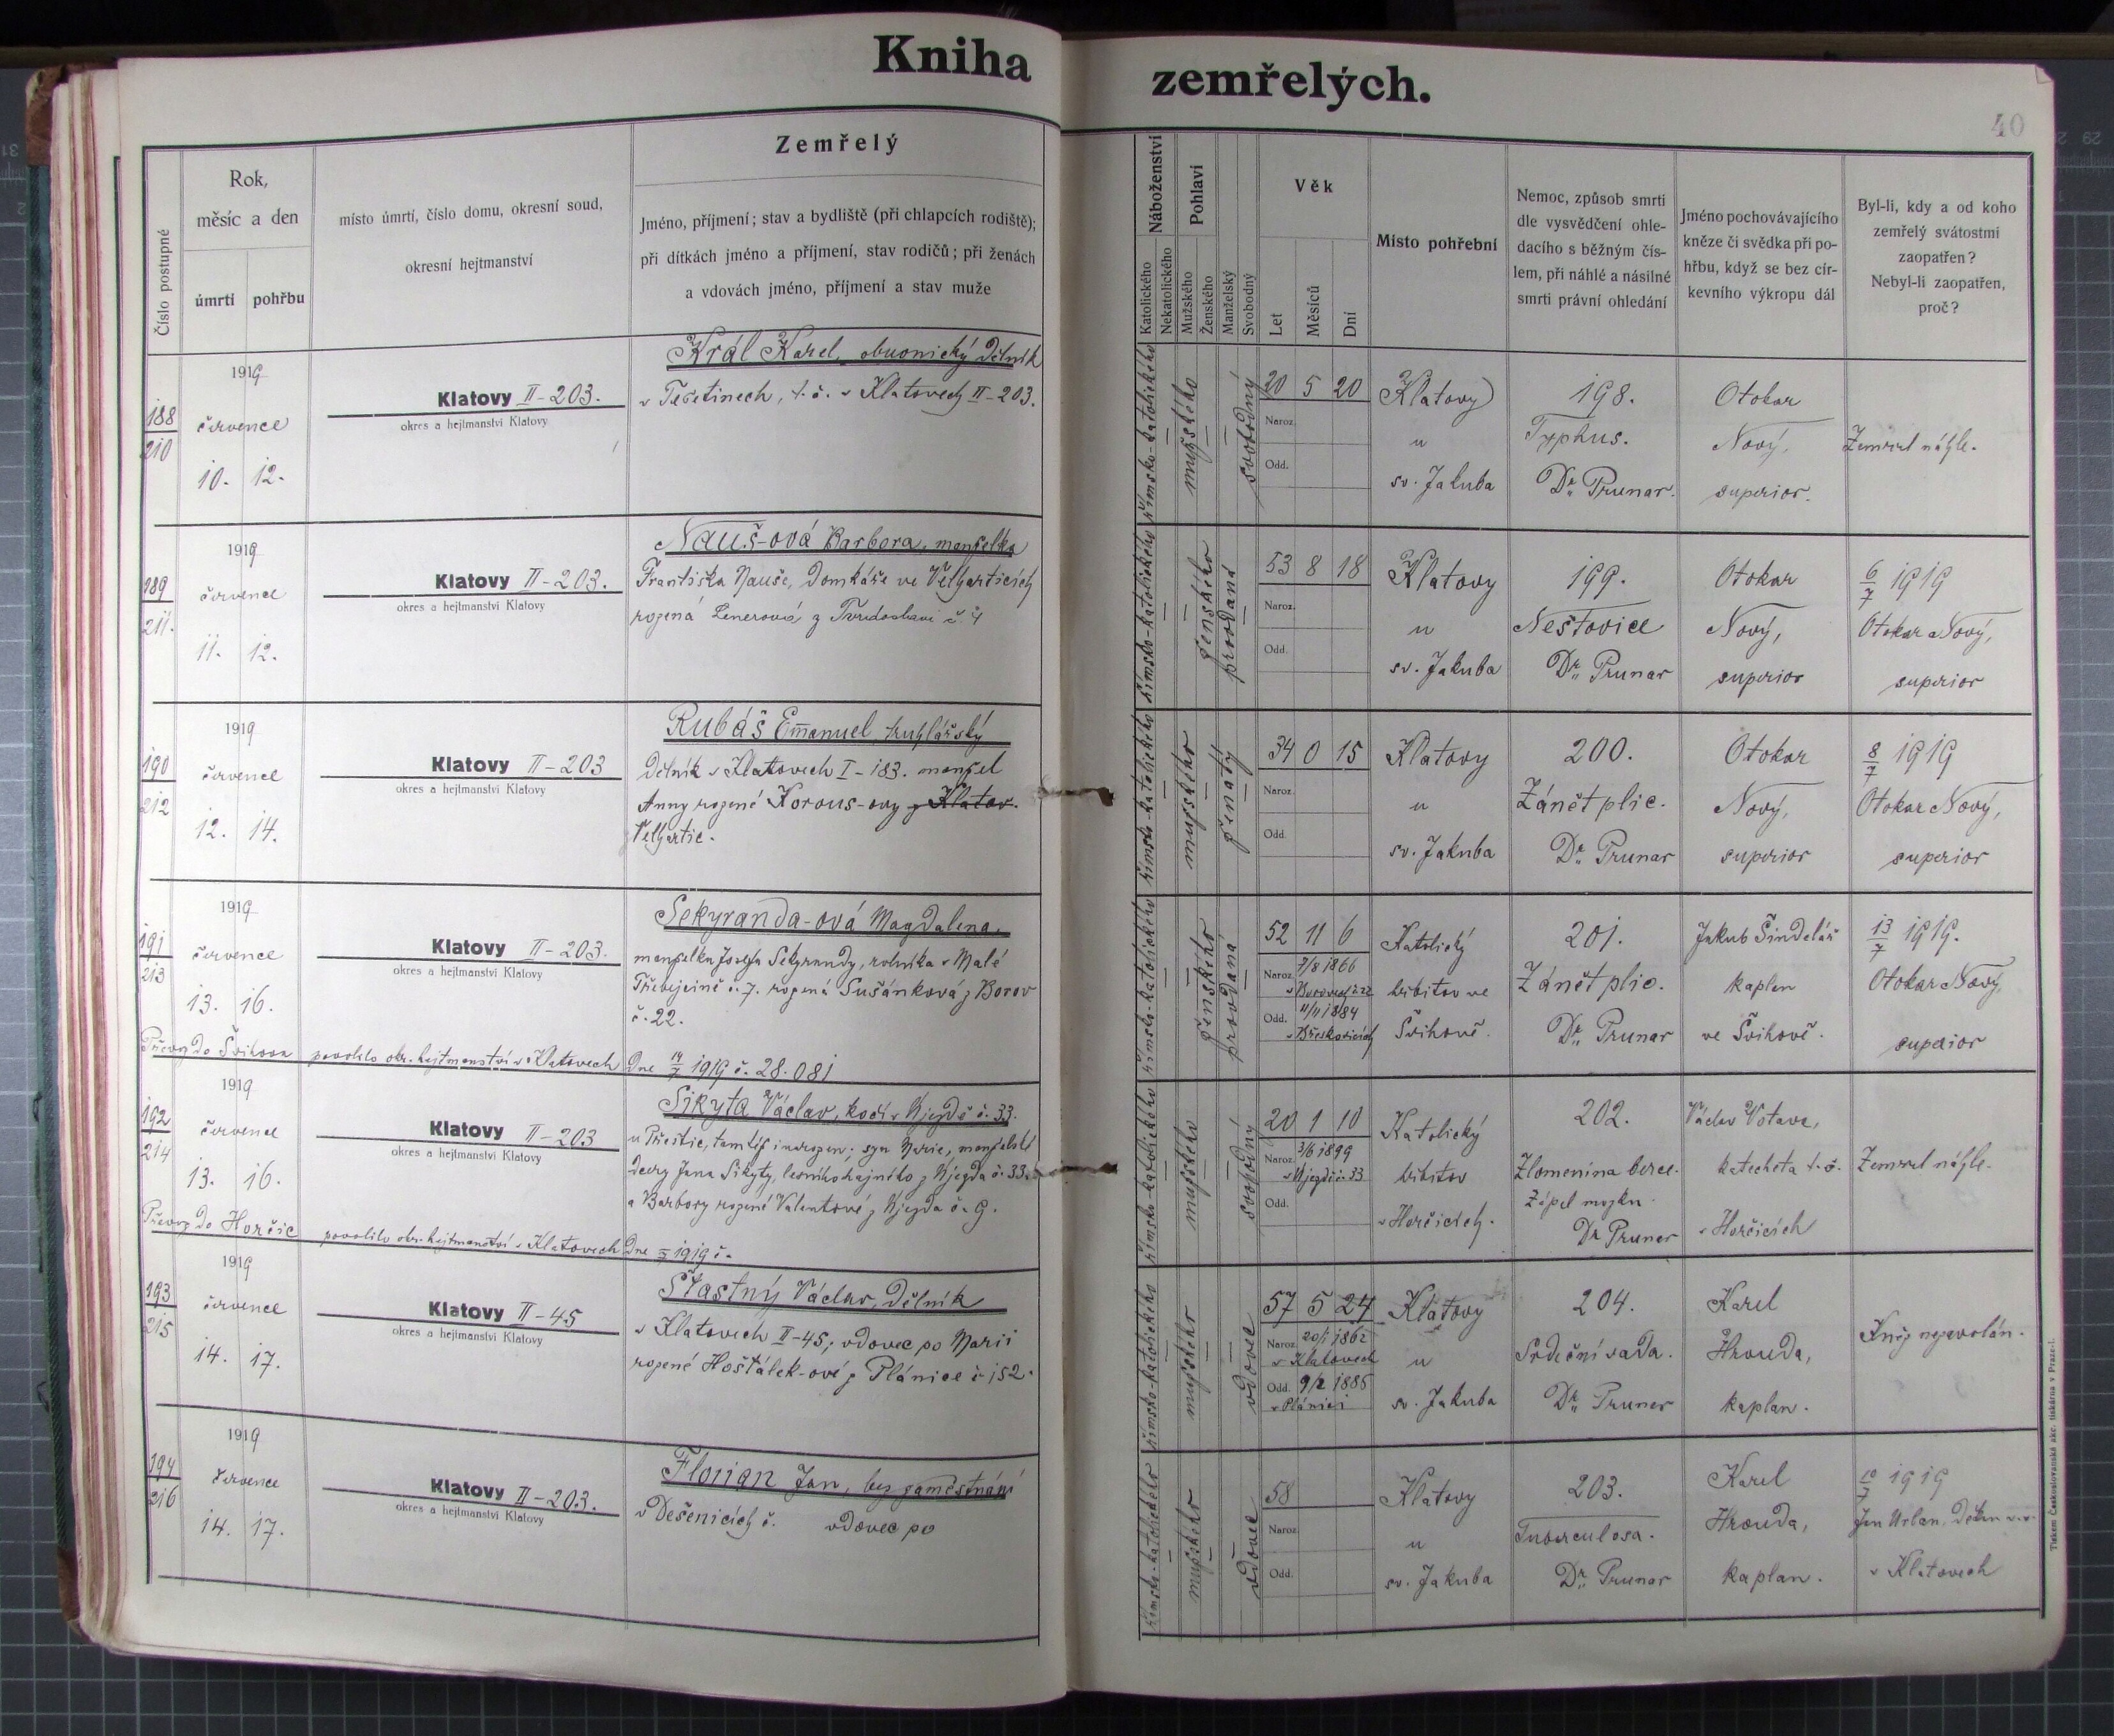 Kniha
zemřelých.
40
Číslo postupné
Rok,
měsíc a den
úmrtí
pohřbu
místo úmrtí, číslo domu, okresní soud,
okresní hejtmanství
Zemřelý
Jméno, příjmení; stav a bydliště (při chlapcích rodiště);
při dítkách jméno a příjmení, stav rodičů; při ženách
a vdovách jméno, příjmení a stav muže
Náboženství
Katolického
Nekatolického
Pohlaví
Mužského
Ženského
Manželský
Svobodný
Věk
Let
Měsíců
Dní
Místo pohřební
Nemoc, způsob smrti
dle vysvědčení ohle-
dacího s běžným čís-
lem, při náhlé a násilné
smrti právní ohledání
Jméno pochovávajícího
kněze či svědka při po-
hřbu, když se bez cír-
kevního výkropu dál
Byl-li, kdy a od koho
zemřelý svátostmi
zaopatřen?
Nebyl-li zaopatřen,
proč?
188
210
1919
července
10. 12.
Klatovy II-203.
okres a hejtmanství Klatovy
Král Karel, obuvnický dělník
v Teřetinech, t.č. v Klatovech II-203.
římsko-katolického
mužského
svobodný
20 5 20
Naroz.
Odd.
Klatovy
u
sv. Jakuba
198.
Typhus.
Dr. Prunar.
Otokar
Nový,
superior.
Zemřel náhle.
189
211.
1919
červenec
11. 12.
Klatovy II-203.
okres a hejtmanství Klatovy
Nauš-ová Barbora, manželka
Františka Nauše, domkáře ve Velharticích
rozená Lenerová z Tvrdoslavi č. 4
římsko-katolického
ženského
provdaná
53 8 18
Naroz.
Odd.
Klatovy
u
sv. Jakuba
199.
Neštovice
Dr. Prunar
Otokar
Nový,
superior
6/7 1919
Otokar Nový,
superior
190
212
1919
červenec
12. 14.
Klatovy II-203
okres a hejtmanství Klatovy
Rubáš Emanuel, truhlářský
dělník v Klatovech I-183. manžel
Anny rozené Korous-ovy z Klatov.
Velhartic.
římsko-katolického
mužského
ženatý
34 0 15
Naroz.
Odd.
Klatovy
u
sv. Jakuba
200.
Zánět plic.
Dr. Prunar
Otokar
Nový,
superior
8/7 1919
Otokar Nový,
superior
191
213
1919
července
13. 16.
Klatovy II-203.
okres a hejtmanství Klatovy
Sekyranda-ová Magdalena,
manželka Josefa Sekyrandy, rolníka v Malé
č. 7. rozená Sušánková z Borov
č. 22.
Převoz do Švihova povolilo okr. hejtmanství v Klatovech dne 14/7 1919 č. 28.081
římsko-katolického
ženského
provdaná
52 11 6
Naroz. 7/8 1866
v Borovech č. 22
Odd. 11/11 1884
v Břeskovicích
Katolický
hřbitov ve
Švihově.
201.
Zánět plic.
Dr. Prunar
Jakub Šindelář
kaplan
ve Švihově.
13/7 1919.
Otokar Nový,
superior
192
214
1919
července
13. 16.
Klatovy II-203
okres a hejtmanství Klatovy
Sikyta Václav, kočí v Újezdě č. 33.
u Přeštic, tamtéž narozen; syn Marie, manželské
dcery Jana Sikyty, lesního hajného z Újezda č. 33.
a Barbory rozené Valentové z Újezda č. 9.
Převoz do Horčic povolilo okr. hejtmanství v Klatovech dne 1919 č.
římsko-katolického
mužského
svobodný
20 1 10
Naroz. 3/6 1899
v Újezdě č. 33
Odd.
Katolický
hřbitov
v Horčicích.
202.
Zlomenina berce.
Zápal mozku.
Dr Prunar
Václav Votava,
katecheta t.č.
v Horčicích
Zemřel náhle.
193
215
1919
července
14. 17.
Klatovy II-45
okres a hejtmanství Klatovy
Šťastný Václav, dělník
v Klatovech II-45; vdovec po Marii
rozené Hošťálek-ové z Plánice č 152.
římsko-katolického
mužského
vdovec
57 5 24
Naroz. 20/1 1862
v Klatovech
Odd. 9/2 1886
v Plánici
Klatovy
u
sv. Jakuba
204.
Srdeční vada.
Dr. Prunar
Karel
Hrouda,
kaplan.
Kněz nezavolán.
194
216
1919
července
14. 17.
Klatovy II-203.
okres a hejtmanství Klatovy
Florian Jan, bez zaměstnání
v Dešenicích č. vdovec po
římsko-katolického
mužského
vdovec
58
Naroz.
Odd.
Klatovy
u
sv. Jakuba
203.
Tuberculosa.
Dr. Prunar
Karel
Hrouda,
kaplan.
10/7 1919
Jan Urban, děkan v.v.
v Klatovech
Tiskem Československá akc. tiskárna v Praze-I.